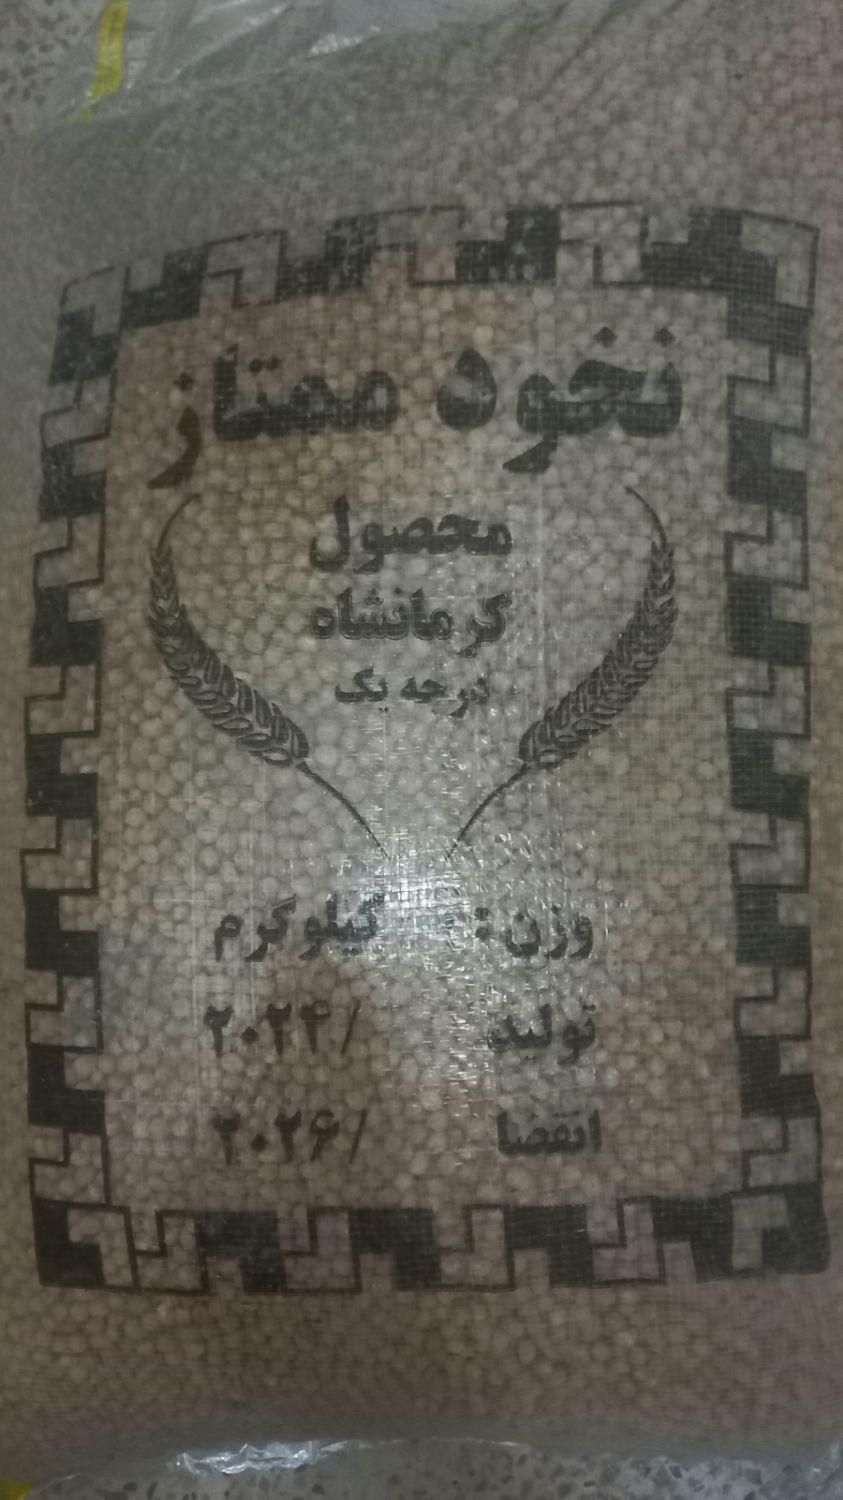 نخود ممتاز
محصول
کرمانشاه
درجه یک
وزن: کیلوگرم
تولید /۲۰۲۴
انقضا /۲۰۲۶